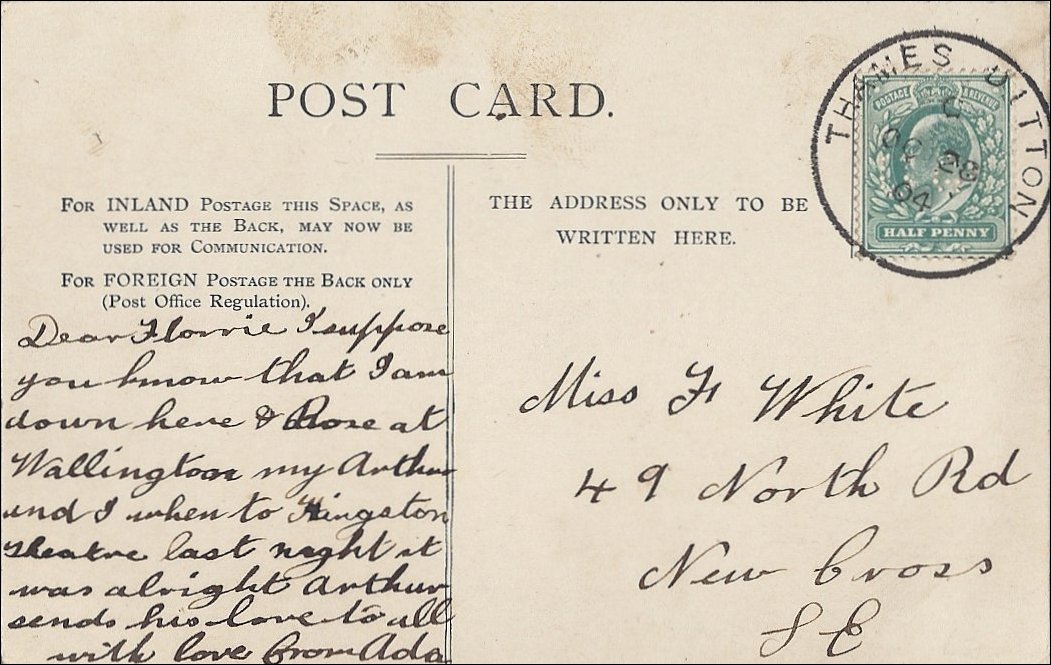 POST CARD.
FOR INLAND POSTAGE THIS SPACE, AS
WELL AS THE BACK, MAY NOW BE
USED FOR COMMUNICATION.
FOR FOREIGN POSTAGE THE BACK ONLY
(Post Office Regulation).
Dear Florrie I suppose
you know that I am
down here & Rose at
Wallington my Arthur
and I when to Kingston
Theatre last night it
was alright Arthur
sends his love to all
with love from Ada
THE ADDRESS ONLY TO BE
WRITTEN HERE.
Miss F White
49 North Rd
New Cross
S E
THAMES DITTON
C
OC 28
04
POSTAGE & REVENUE
HALF PENNY